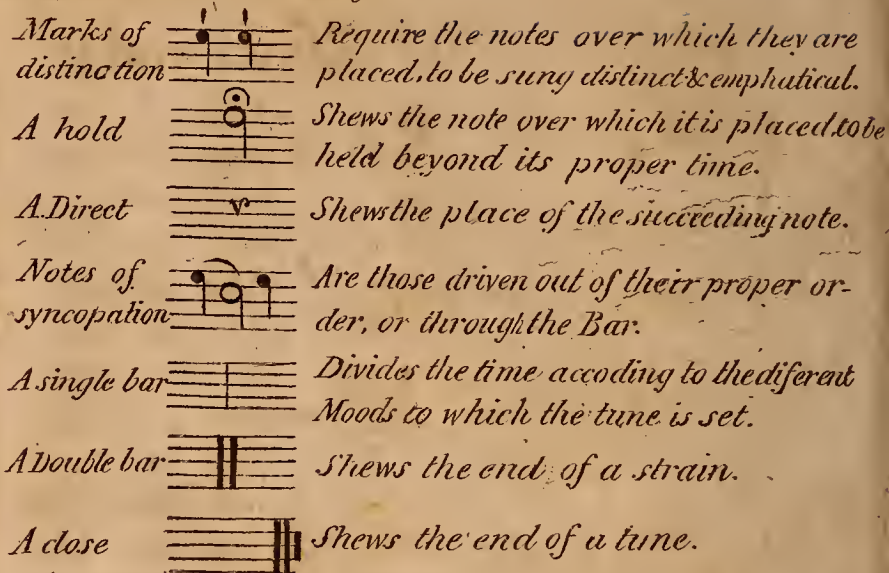 Marks of Require the notes over which they are
distination placed, to be sung distinct & emphatical.
A hold Shews the note over which it is placed, to be
held beyond its proper time.
A Direct Shews the place of the succeeding note.
Notes of Are those driven out of their proper or-
syncopation der, or through the Bar.
A single bar Divides the time accoding to the diferent
Moods to which the tune is set.
A Double bar Shews the end of a strain.
A close Shews the end of a tune.